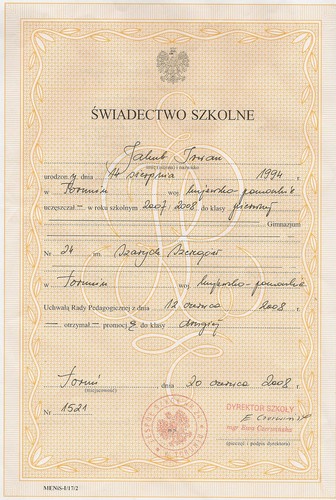 ŚWIADECTWO SZKOLNE
Jakub
imię (imiona) i nazwisko
urodzon y dnia 14 sierpnia 1994 r.
w Toruniu woj. kujawsko-pomorskie
uczęszczał — w roku szkolnym 2007 / 2008 do klasy pierwszej
Gimnazjum
Nr 24 im. Szarych Szeregów
w Toruniu woj. kujawsko-pomorskie
Uchwałą Rady Pedagogicznej z dnia 12 czerwca 2008 r.
— otrzymał — promocję do klasy drugiej
Toruń, dnia 20 czerwca 2008 r.
(miejscowość)
Nr 1521
DYREKTOR SZKOŁY
mgr Ewa
(pieczęć i podpis dyrektora)
MENiS-I/17/2